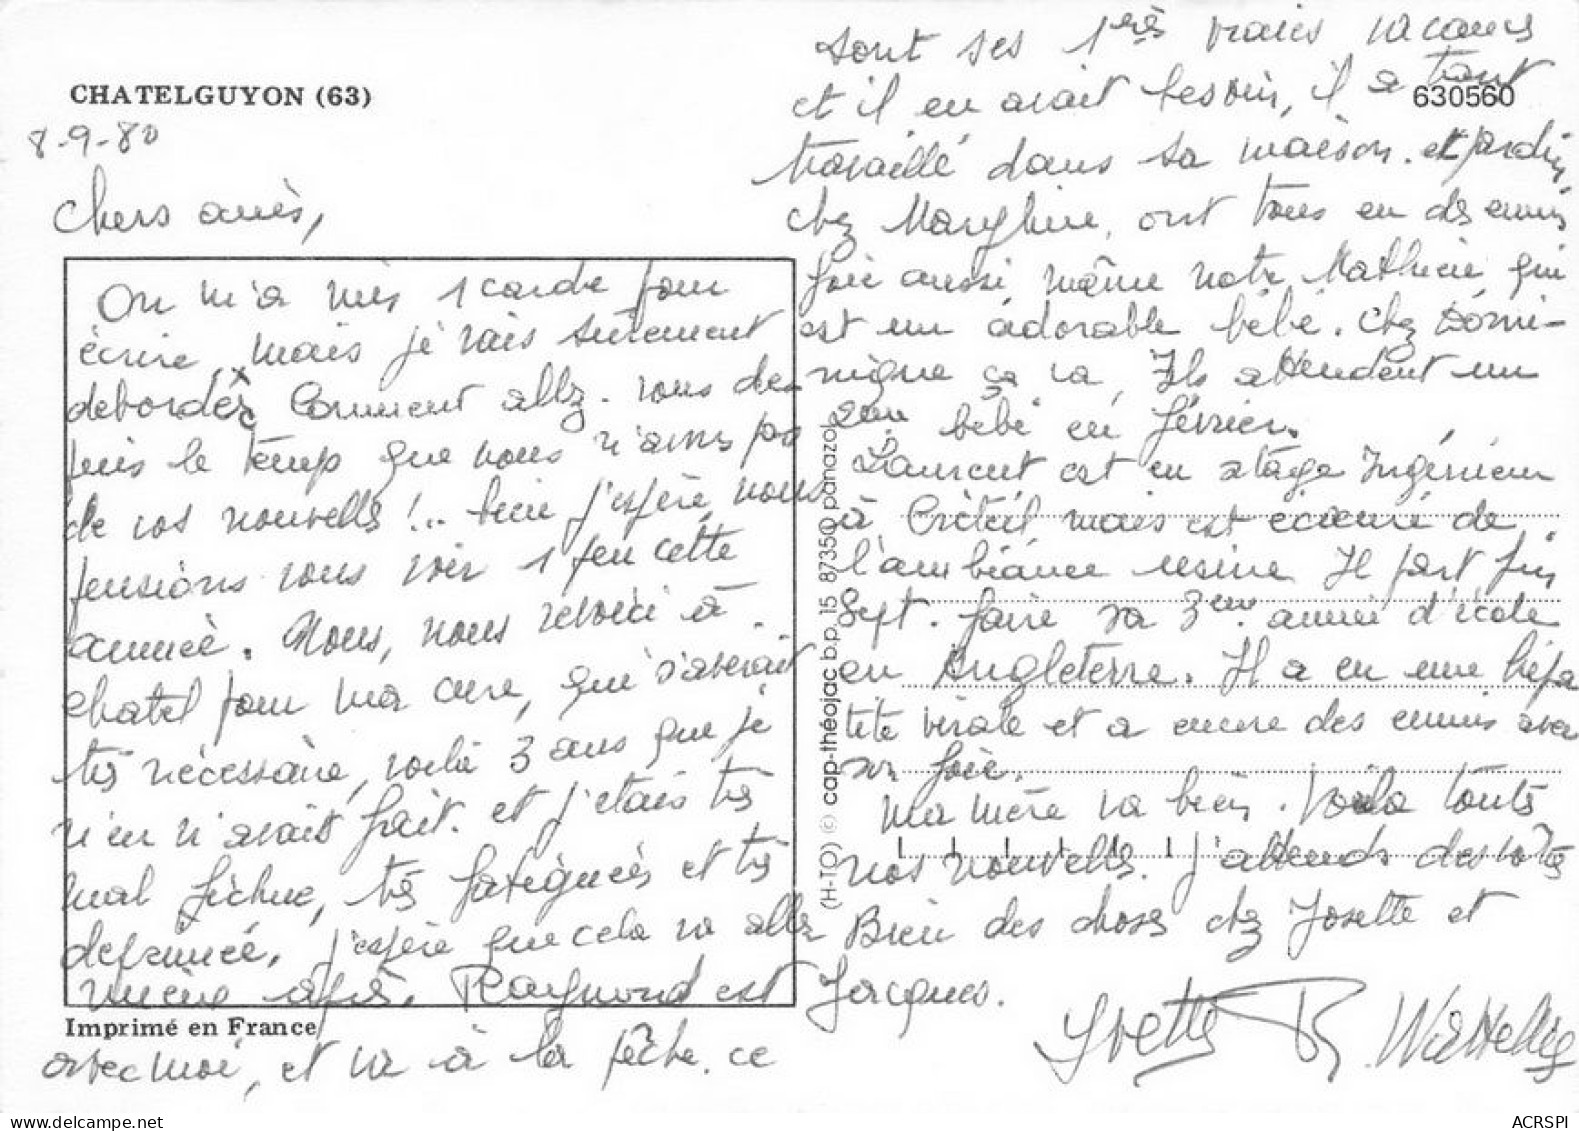 CHATELGUYON (63)
8-9-80
Chers amis,
On m'a mis 1 carde pour
écrire, mais je vais surement
deborder. Comment allez-vous de
puis le temps que nous n'avons pas
de vos nouvelles !.. bien j'espère, nous
pensions vous voir 1 peu cette
année. Nous, nous revoici à
chatel pour ma cure, qui s'averait
très nécessaire, voila 3 ans que je
n'en n'avait fait. et j'étais très
mal fichue, très fatiguée et très
deprimée. j'espère que cela va aller
mieux après. Raymond est
Imprimé en France
avec moi, et va à la pêche. ce
sont ses 1ères vraies vacances
et il en avait besoin, il a tant
630560
travaillé dans sa maison. et jardin,
chez Maryline, ont tous eu des ennuis
foie aussi même notre Mathieu qui
est un adorable bébé. Chez Domi-
nique ça va, Ils attendent un
2ème bébé en février.
Laurent est en stage Ingénieur
à Créteil mais est écoeuré de
l'ambiance usine Il part fin
Sept. faire sa 3ème année d'école
en Angleterre. Il a eu une hépa
tite virale et a encore des ennuis avec
son foie.
Ma mère va bien. Voila toutes
nos nouvelles. J'attends des votres
Bien des choses chez Josette et
Jacques.
Yvette R. Wattelliez
(H-TO) © cap-théojac b.p. 15 87350 panazol
ACRSPI
www.delcampe.net